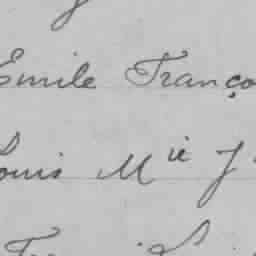 Emile Franço
Louis M^ie J